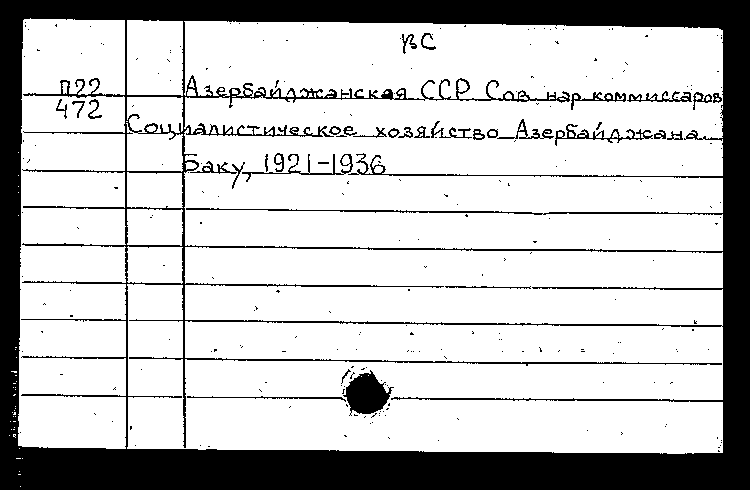 ВС
П22
472
Азербайджанская ССР Сов. нар. комиссаров
Социалистическое хозяйство Азербайджана.
Баку, 1921-1936